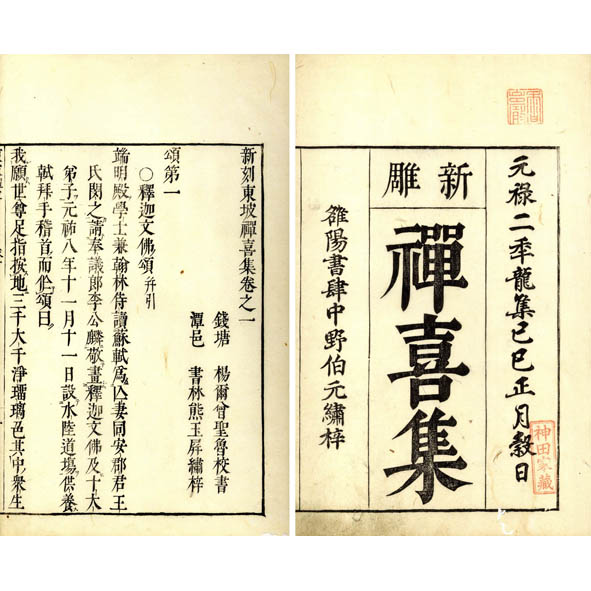 元禄二季龍集己巳正月穀日
神田家藏
新雕
禪喜集
雒陽書肆中野伯元繡梓
新刻東坡禪喜集卷之一
錢塘　楊爾曾聖魯校書
潭邑　書林熊玉屏繡梓
頌第一
○釋迦文佛頌并引
端明殿學士兼翰林侍讀蘇軾爲亾妻同安郡君王
氏閏之請奉議郎李公麟敬畫釋迦文佛及十大
弟子元祐八年十一月十一日設水陸道場供養
軾拜手稽首而作頌曰
我願世尊足指按地三千大千淨琉璃色其中衆生